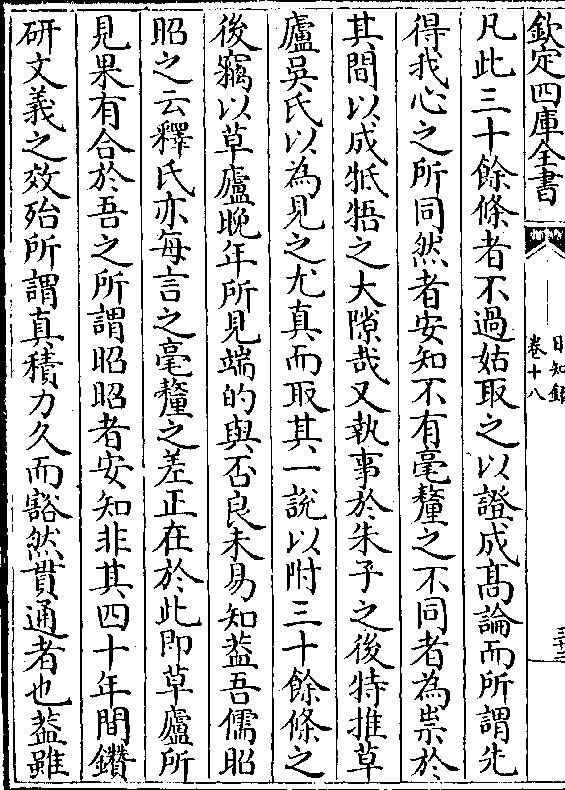 欽定四庫全書
日知錄
卷十八
三十三
凡此三十餘條者不過姑取之以證成髙論而所謂先
得我心之所同然者安知不有毫釐之不同者為祟於
其間以成牴牾之大隙哉又執事於朱子之後特推草
廬吳氏以為見之尤真而取其一說以附三十餘條之
後竊以草廬晚年所見端的與否良未易知葢吾儒昭
昭之云釋氏亦每言之毫釐之差正在於此即草廬所
見果有合於吾之所謂昭昭者安知非其四十年間鑽
研文義之效殆所謂真積力久而豁然貫通者也葢雖